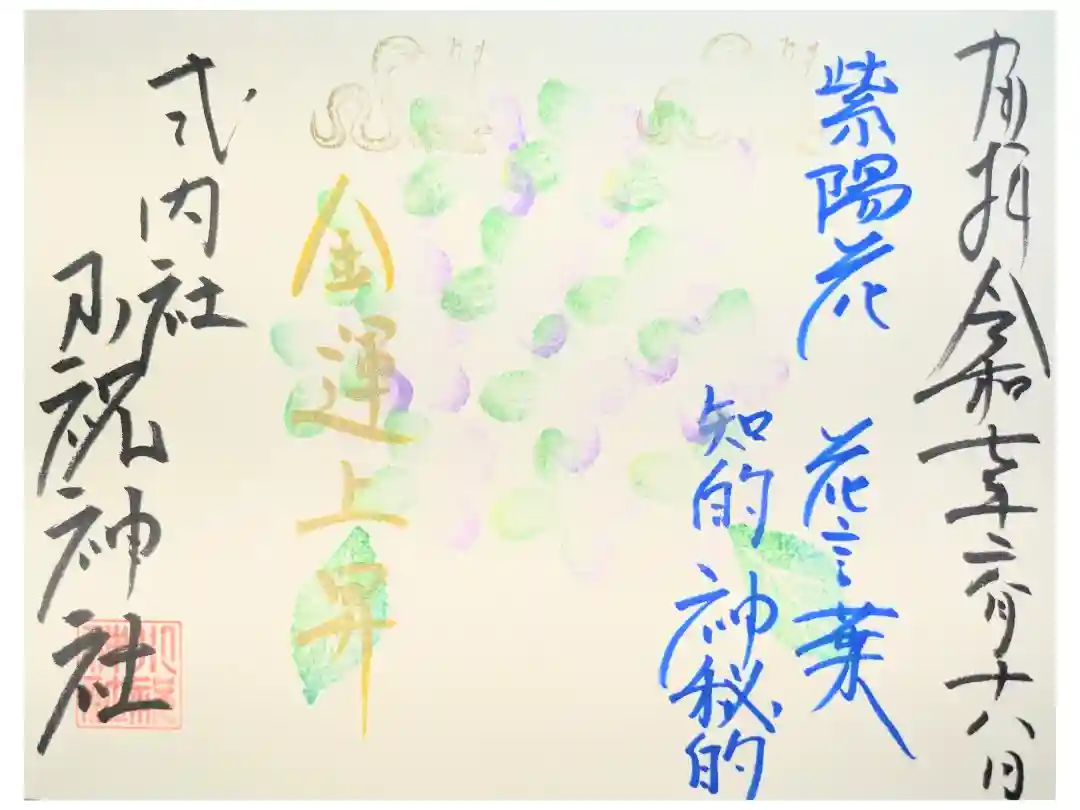 奉拝 令和七年六月十八日
紫陽花 花言葉
知的 神秘的
金運上昇
式内社
小祝神社